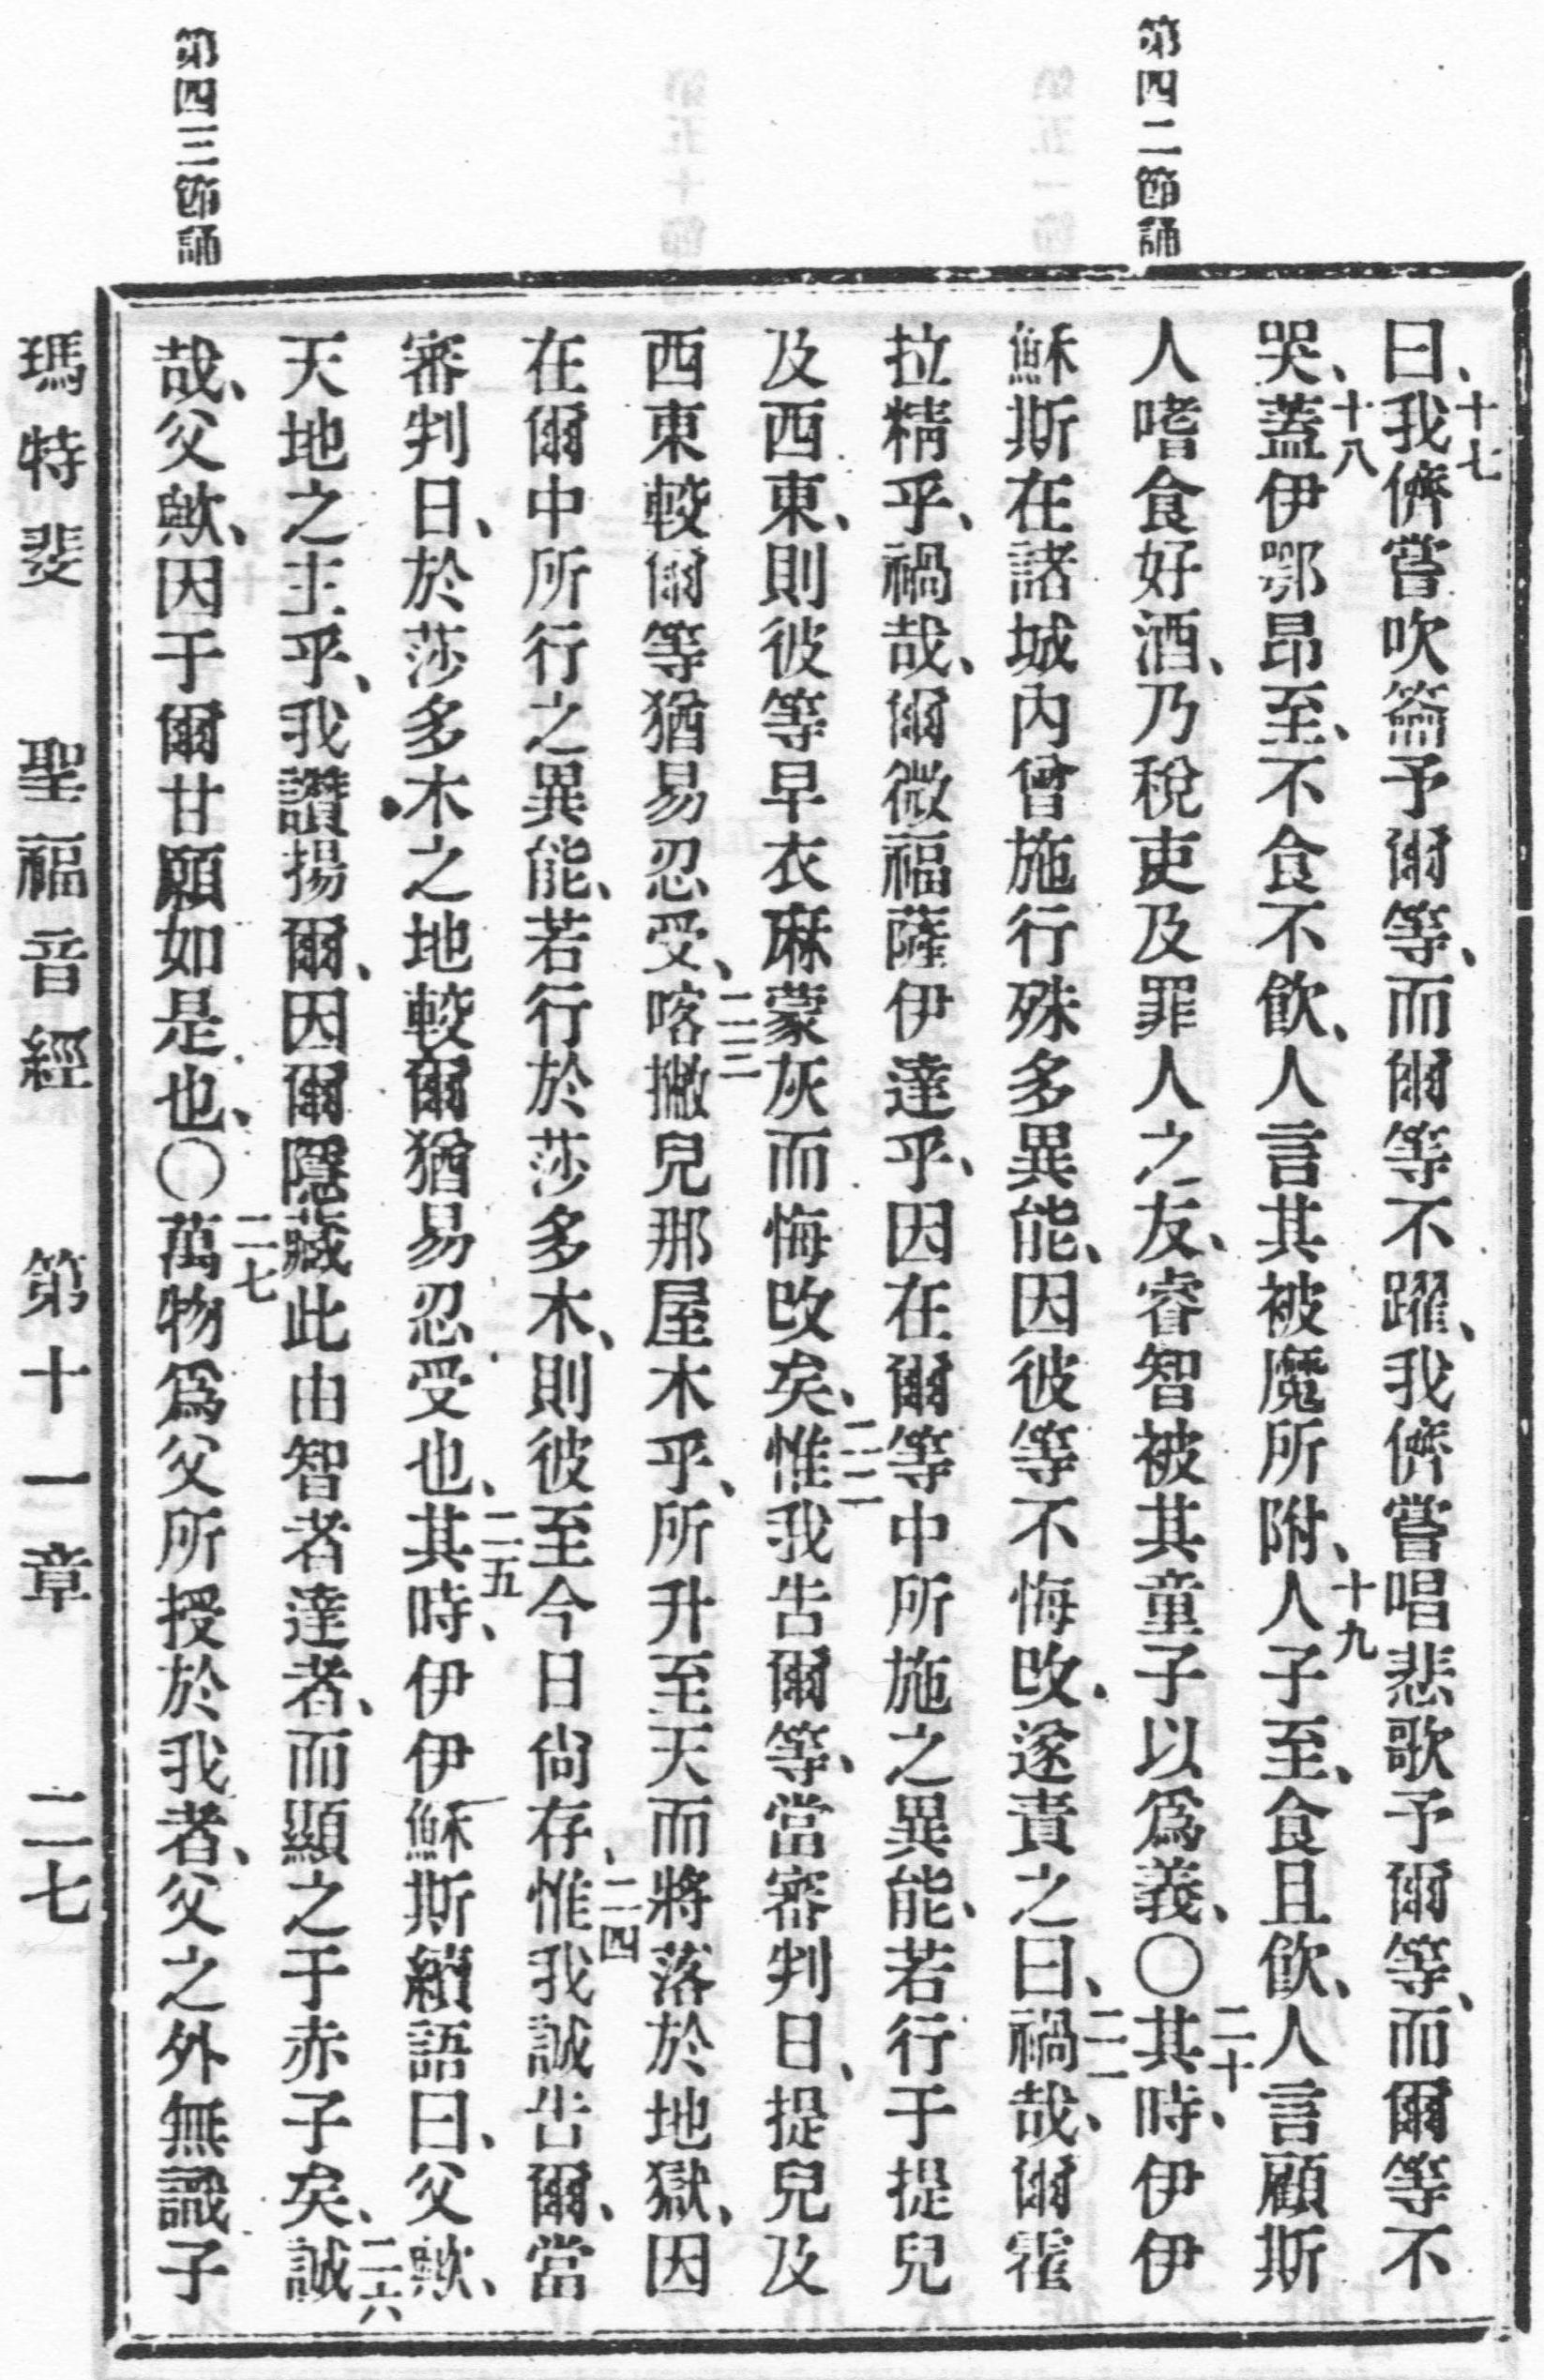 第四二節誦
曰、十七我儕嘗吹籥予爾等、而爾等不躍、我儕嘗唱悲歌予爾等、而爾等不
哭、十八蓋伊鄂昂至、不食不飲、人言其被魔所附、十九人子至、食且飲、人言顧斯
人嗜食好酒、乃稅吏及罪人之友、睿智被其童子以爲義、〇二十其時、伊伊
穌斯在諸城內曾施行殊多異能、因彼等不悔改、遂責之曰、二一禍哉、爾霍
拉精乎、禍哉、爾微福薩伊達乎、因在爾等中所施之異能、若行于提兒
及西東、則彼等早衣麻蒙灰而悔改矣、二二惟我告爾等、當審判日、提兒及
西東較爾等猶易忍受、二三喀撇兒那屋木乎、所升至天而將落於地獄、因
在爾中所行之異能、若行於莎多木、則彼至今日尙存、二四惟我誠告爾、當
審判日、於莎多木之地較爾猶易忍受也、二五其時、伊伊穌斯續語曰、父歟、
天地之主乎、我讚揚爾、因爾隱藏此由智者達者、而顯之于赤子矣、二六誠
第四三節誦
哉、父歟、因于爾甘願如是也、〇二七萬物爲父所授於我者、父之外無識子
瑪特斐 聖福音經 第十一章 二七